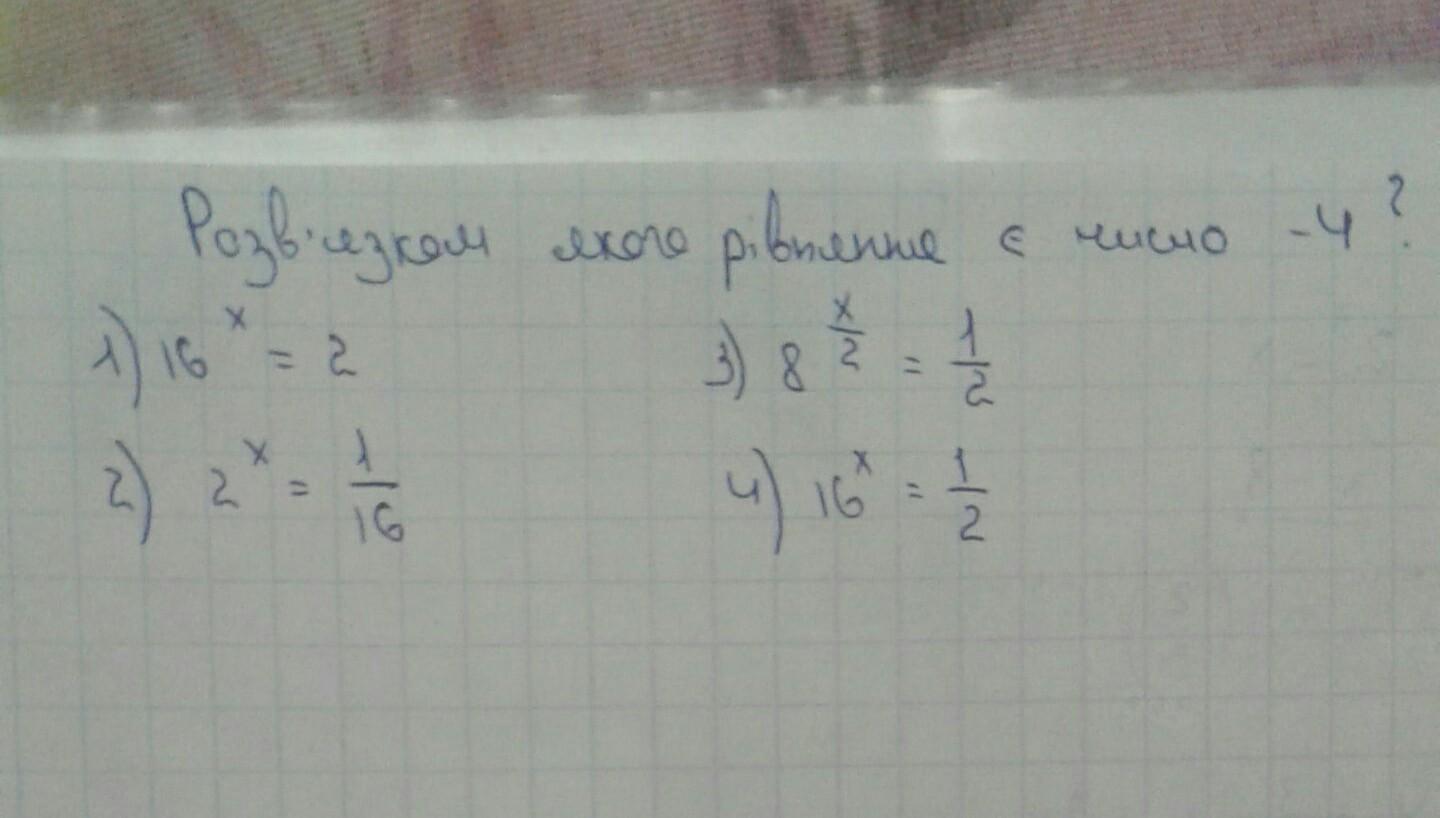 Розв'язком якого рівняння є число -4?
1) 16^x = 2
3) 8^(x/2) = 1/2
2) 2^x = 1/16
4) 16^x = 1/2